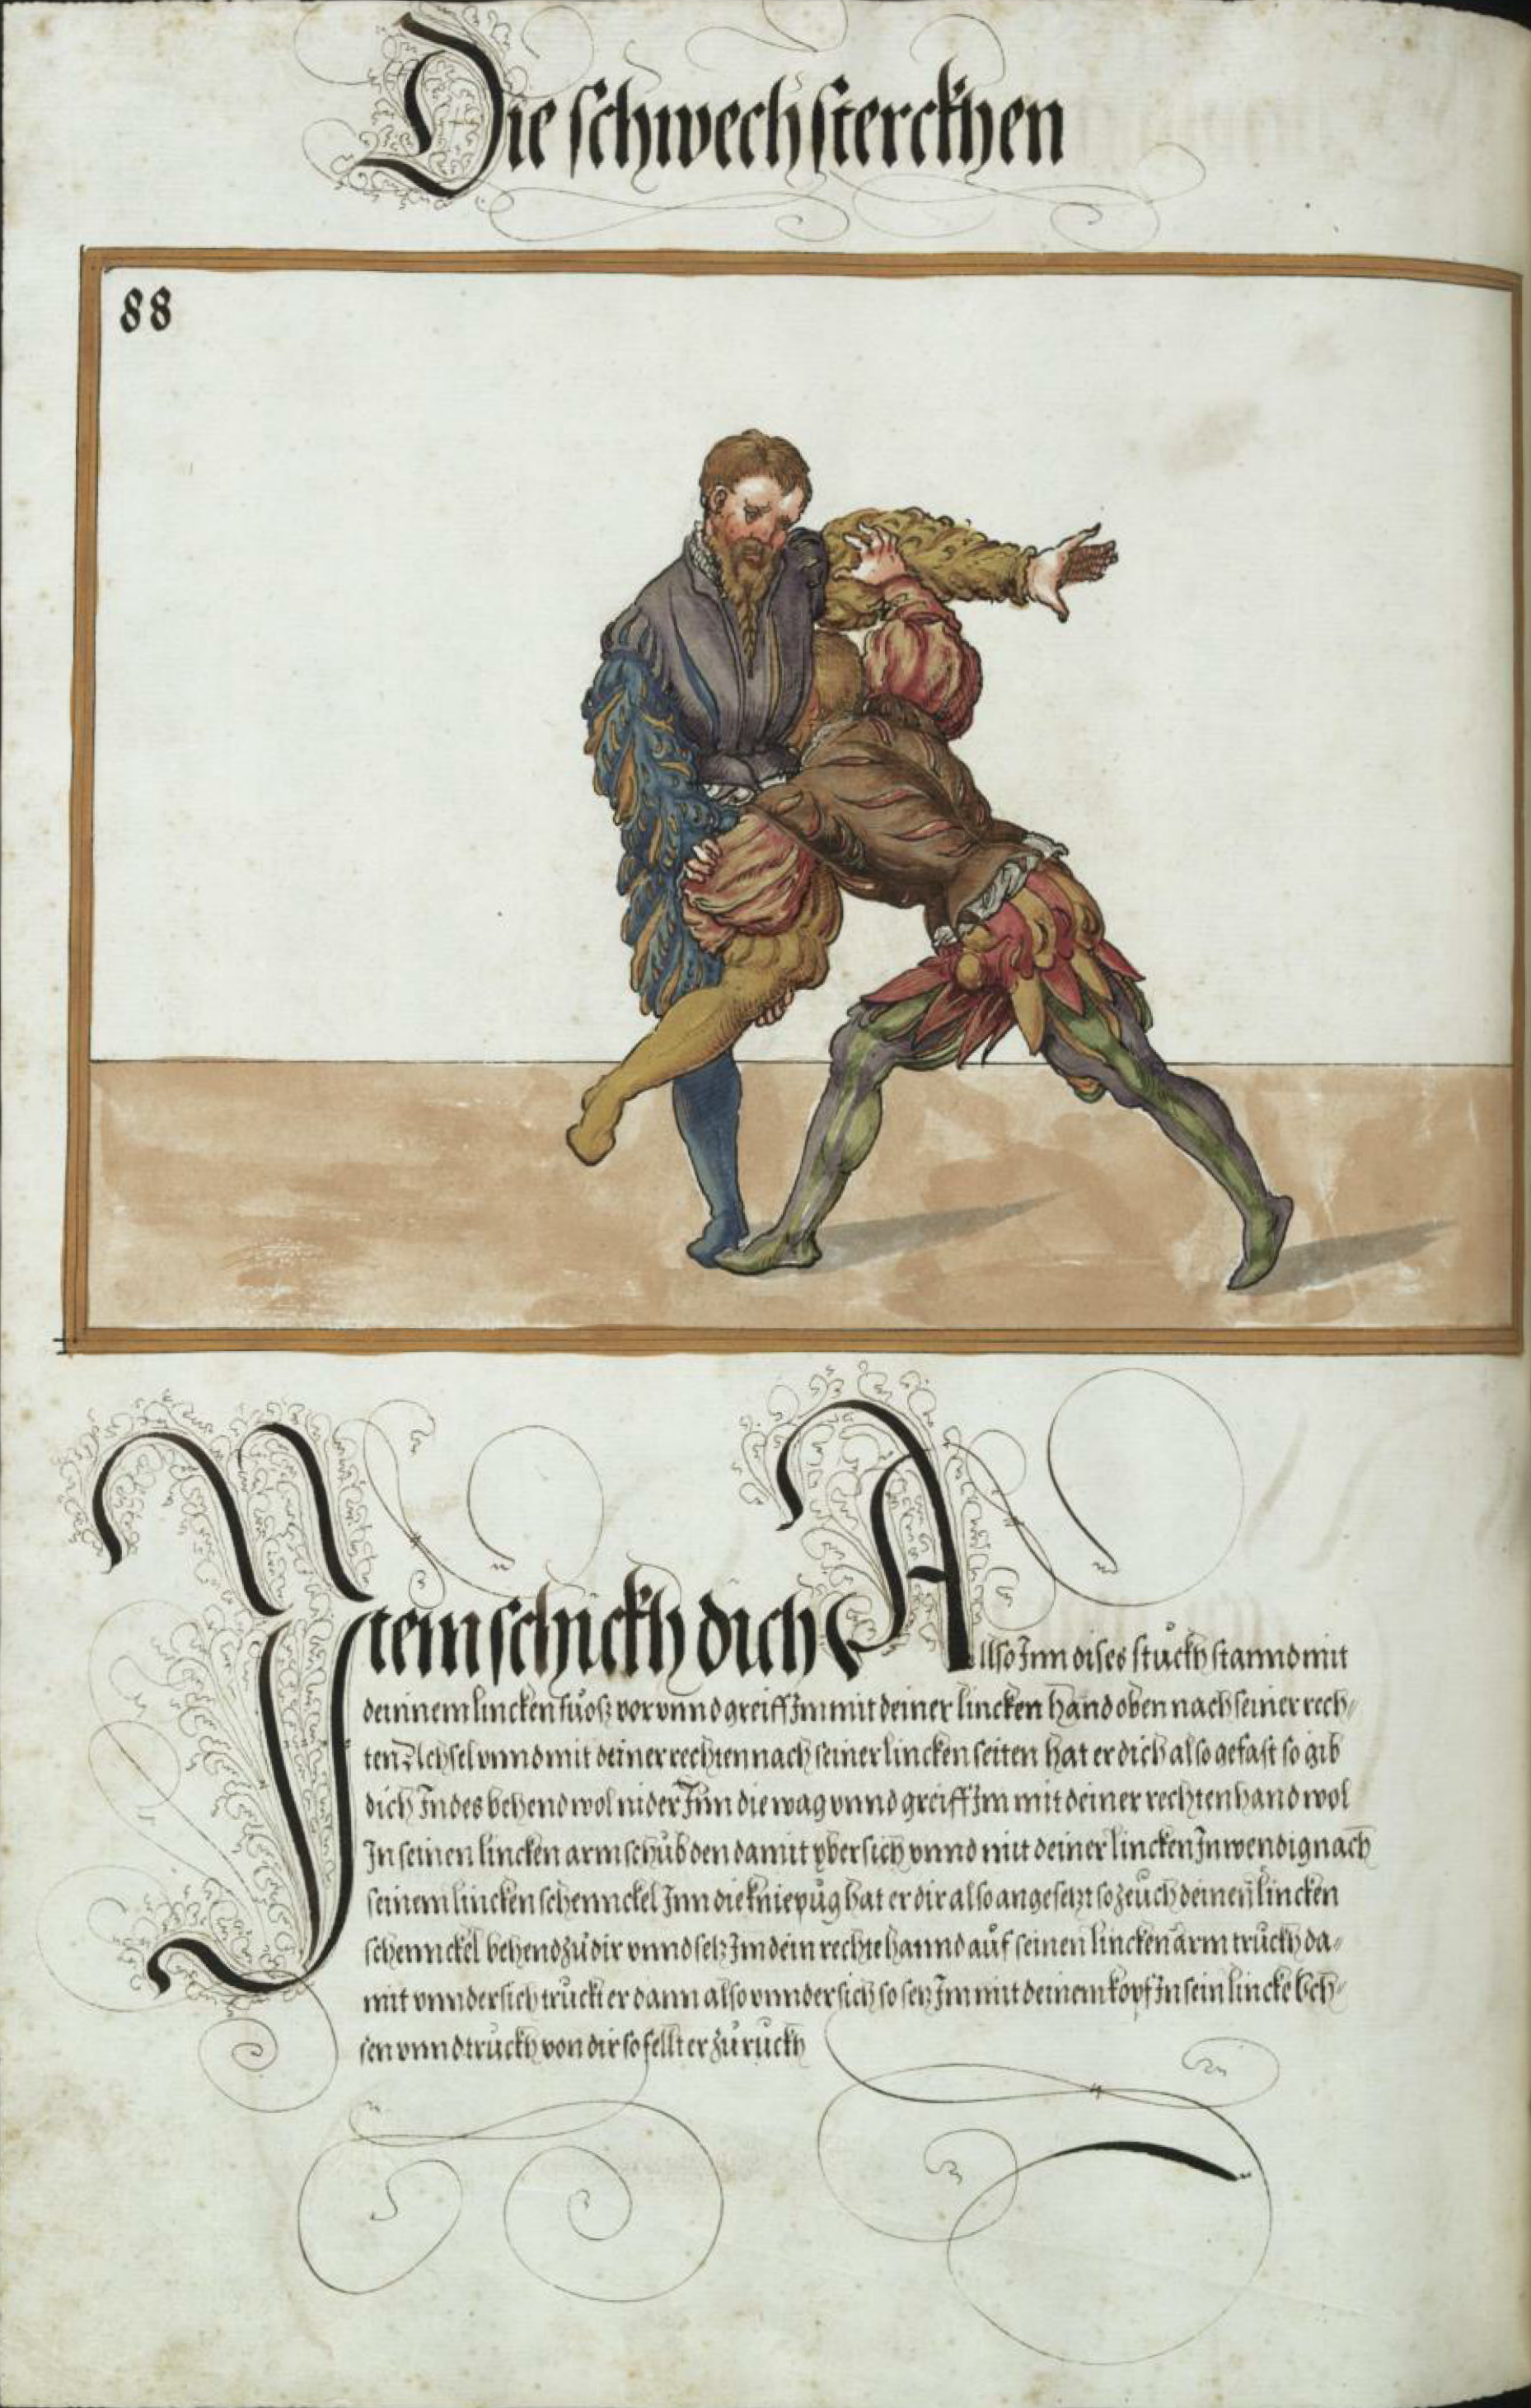 Die schwech sterckhen
88
Item schickh dich Allso Inn dises stuckh stannd mit
deinnem lincken fuosz vor vnnd greiff Im mit deiner lincken hand oben nach seiner rech-
ten Achsel vnnd mit deiner rechten nach seiner lincken seiten hat er dich also gefast so gib
dich Indes behend wol nider Inn die wag vnnd greiff Im mit deiner rechten hand wol
In seinen lincken arm schub den damit ybersich vnnd mit deiner lincken Inwendig nach
seinem lincken schennckel Inn die kniepug hat er dir also angesetzt so zeuch deinen lincken
schennckel behend zu dir vnnd setz Im dein rechte hannd auf seinen lincken arm truckh da-
mit vnndersich truckt er dann also vnndersich so setz Im mit deinem kopf In sein lincke Ech-
sen vnnd truckh von dir so fellt er zuruckh